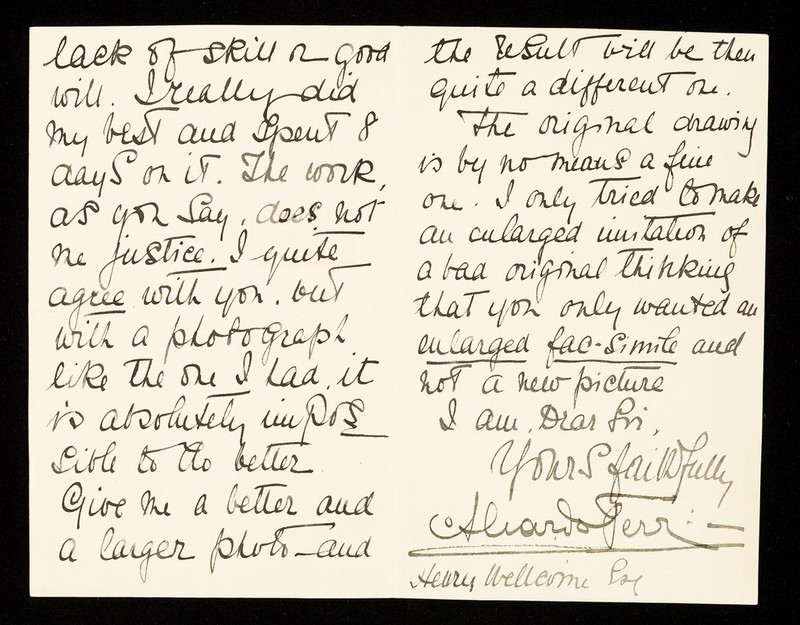 lack of skill or good
will. I really did
my best and spent 8
days on it. The work,
as you say, does not
me justice. I quite
agree with you, but
with a photograph
like the one I had, it
is absolutely impos
sible to do better
Give me a better and
a larger photo - and
the result will be then
quite a different one.
The original drawing
is by no means a fine
one. I only tried to make
an enlarged imitation of
a bad original thinking
that you only wanted an
enlarged fac-simile and
not a new picture
I am, Dear Sir,
Yours faithfully
Henry Wellcome Esq